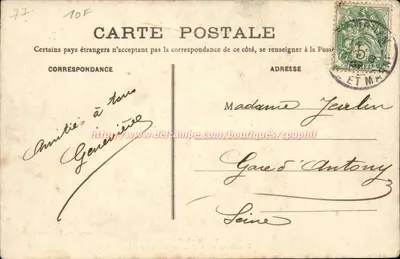 77
10F
CARTE POSTALE
Certains pays étrangers n'acceptant pas la correspondance de ce côté, se renseigner à la Poste
CORRESPONDANCE
ADRESSE
ET MARNE
Amitiés à tous
Geneviève
http://www.delcampe.com/boutiques/cpaphil
Madame
Gare d'Antony
Seine